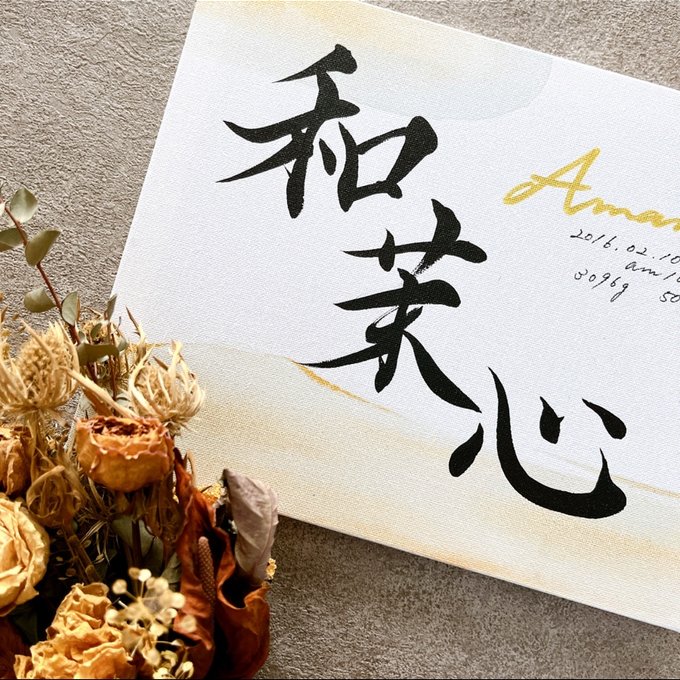 和茉心
Ama
2016.02.10
am10
3096g 50